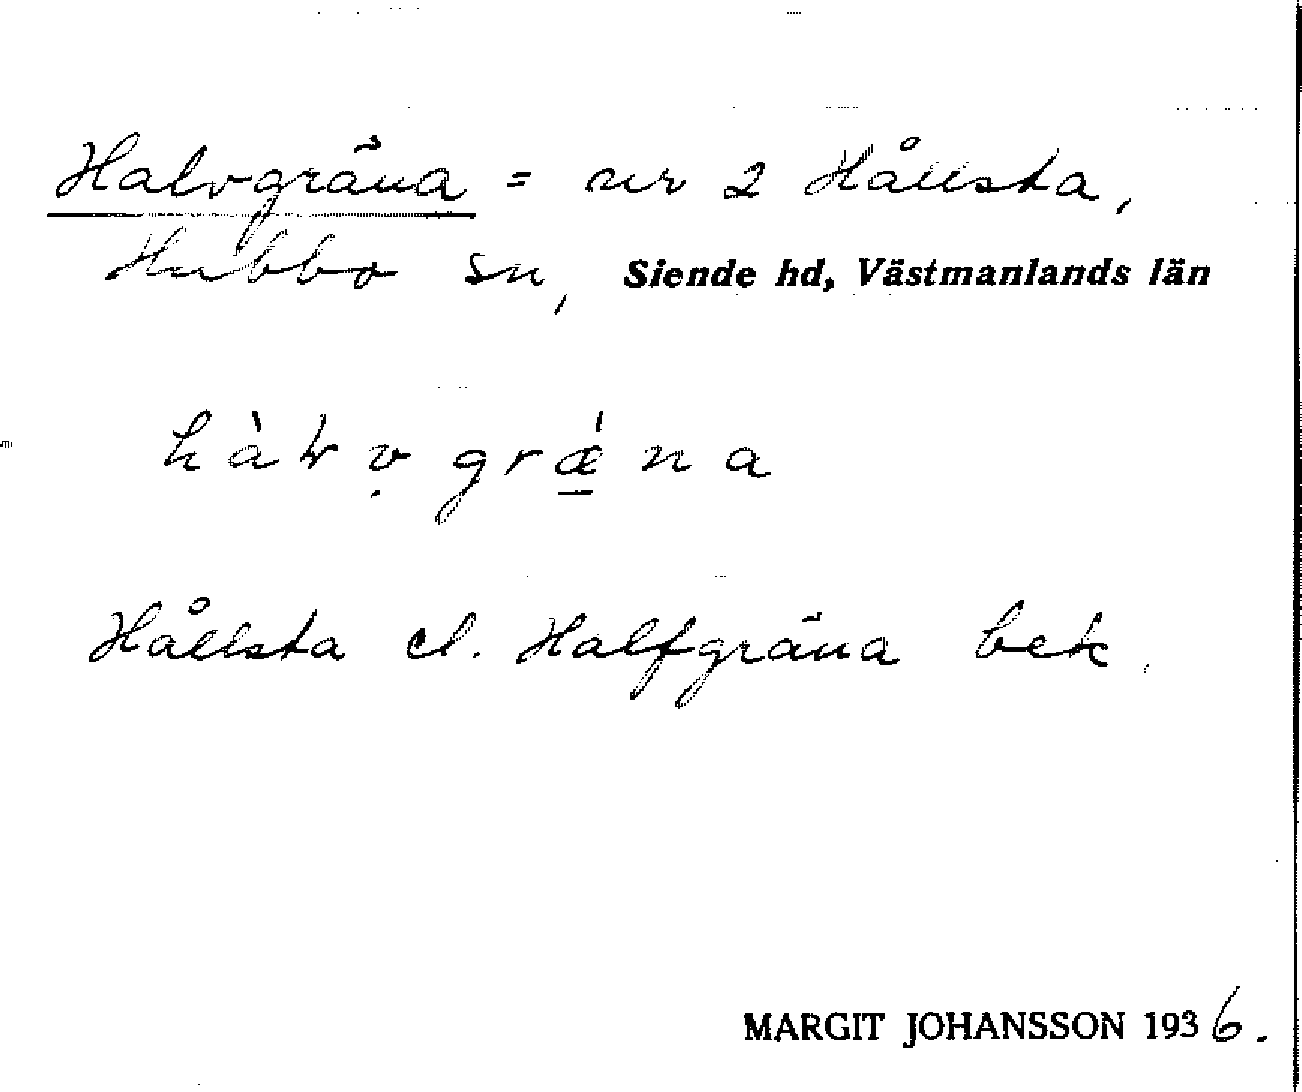 Halvgräna = nr 2 Hållsta,
Hubbo sn, Siende hd, Västmanlands län
Hållsta el. Halfgräna bek.
MARGIT JOHANSSON 1936.